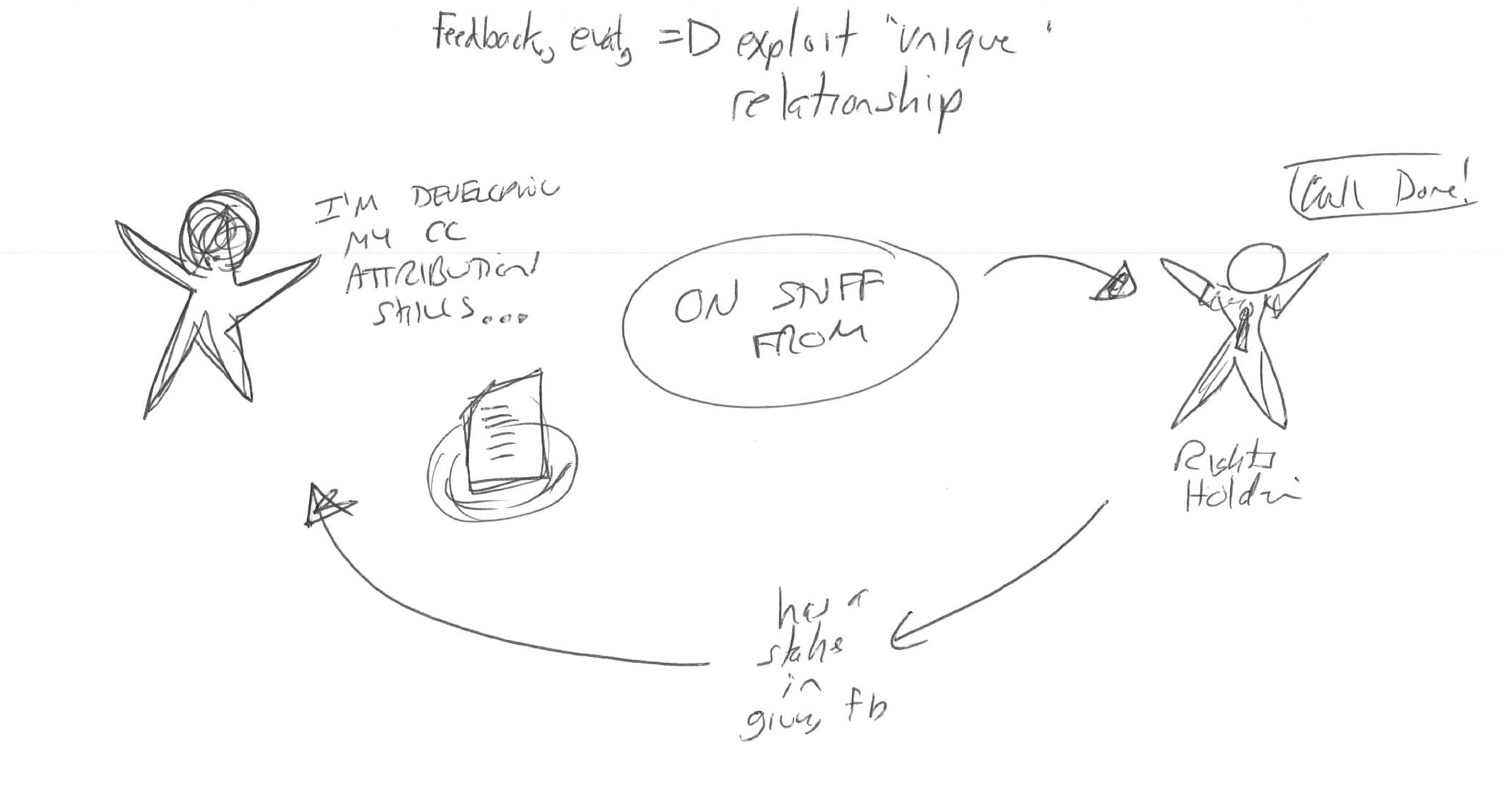 Feedback, eval, => exploit "unique"
relationship
I'M DEVELOPING
MY CC
ATTRIBUTION
SKILLS...
ON STUFF
FROM
Well Done!
Rights
Holder
has a
stake
in
giving fb